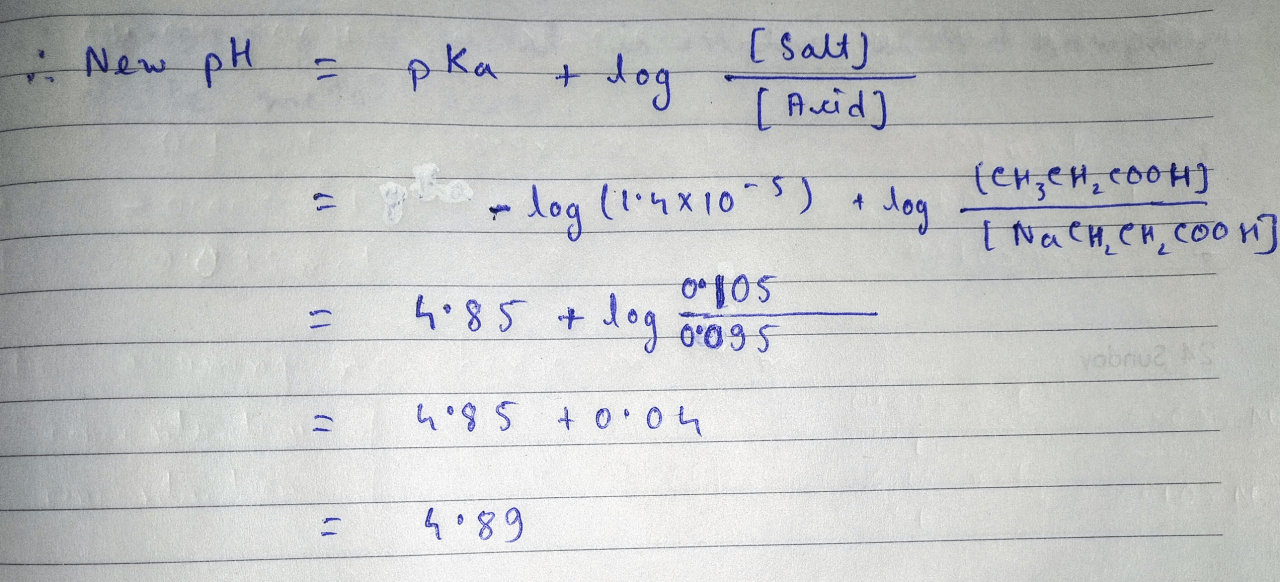 ∴ New pH = pKa + log [Salt] / [Acid]
= - log (1.4 x 10^-5) + log [CH₃CH₂COOH] / [NaCH₂CH₂COOH]
= 4.85 + log 0.105 / 0.095
= 4.85 + 0.04
24 Sunday
= 4.89